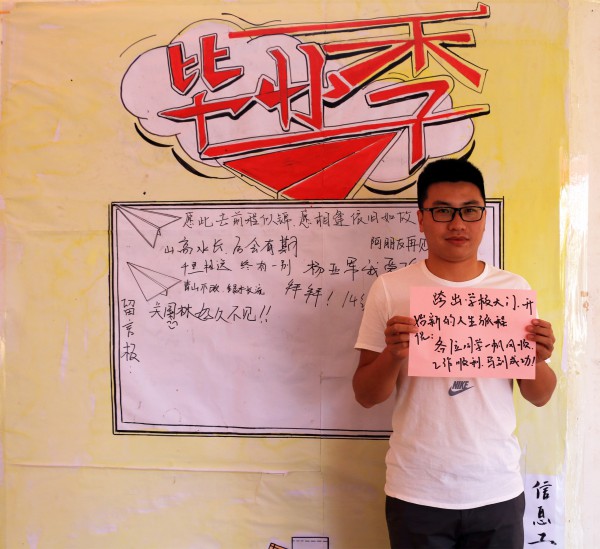 毕业季
愿此去前程似锦，愿相逢依旧如故
山高水长，后会有期
阿朋友再见
千里相送 终有一别
杨亚军我爱
青山不改 绿水长流
拜拜！14级
关国林好久不见!!
留言板：
跨出学校大门，开
始新的人生旅程
祝：各位同学一帆风顺，
工作顺利，马到成功！
NIKE
信息工